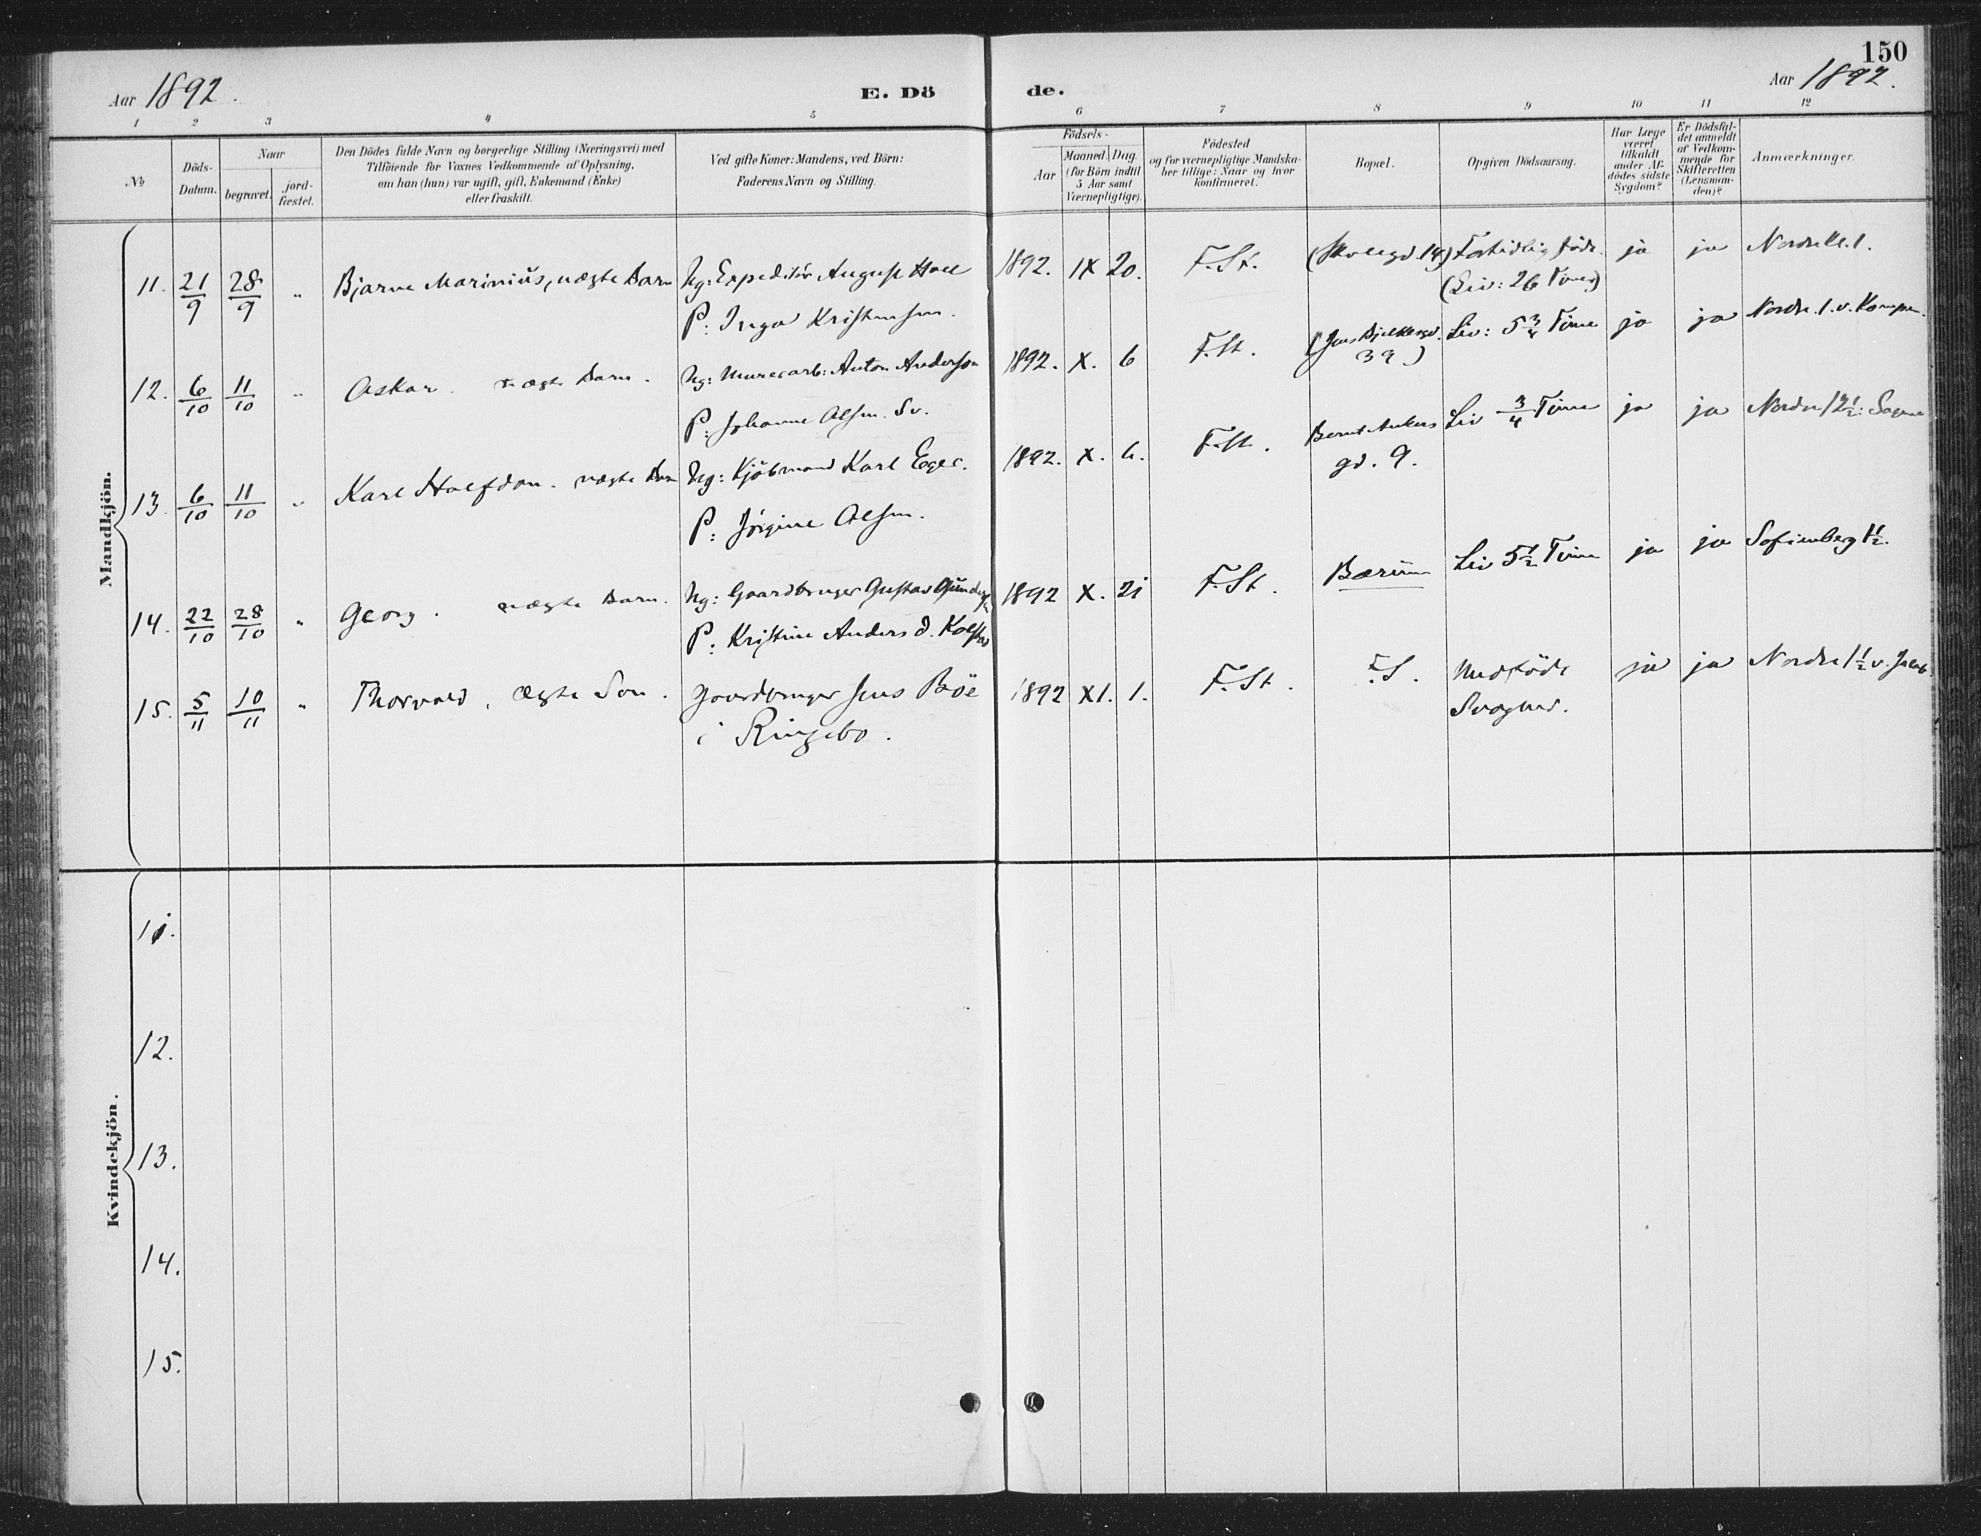 150
Aar 1892.
E. Dö
de.
Aar 1892.
1 2 3 4 5 6 7 8 9 10 11 12
No
Döds-
Datum.
Naar
begravet.
jord-
fæstet.
Den Dödes fulde Navn og borgerlige Stilling (Næringsvei) med
Tilföiende for Voxnes Vedkommende af Oplysning,
om han (hun) var ugift, gift, Enkemand (Enke)
eller fraskilt.
Ved gifte Koner: Mandens, ved Börn:
Faderens Navn og Stilling.
Födsels-
Aar
Maaned. Dag.
(for Börn indtil
5 Aar samt
Værnepligtige).
Födested
og for værnepligtige Mandska-
ber tillige: Naar og hvor
konfirmeret.
Bopæl.
Opgiven Dödsaarsag.
Har Læge
været
tilkaldt
under Af-
dödes sidste
Sygdom?
Er Dödsfal-
det anmeldt
af Vedkom-
mende for
Skifteretten
(Lensman-
den)?
Anmærkninger.
Mandkjön.
11. 21/9 28/9 " Bjarne Marinius, uægte Barn Ug: Expeditør August 1892. IX 20. F.St. 14) Fortidlig født. ja ja Nordre
P: Inga Kristensen. (Liv: 26 Timer)
12. 6/10 11/10 " Oskar. uægte Barn. Ug: Murerarb: Anton Anderson 1892. X. 6 F.St. (Jens Bjelkesgd. Liv: 5 3/4 Time ja ja Nordre 1. v.
P: Johanne Olsen. Sv. 39)
13. 6/10 11/10 " Karl Halfdan. uægte Barn Ug: Kjøbmand Karl Eger. 1892. X. 6. F.St. Bernt Ankers Liv 3/4 Time ja ja Nordre
P: Jørgine Olsen. gd. 9.
14. 22/10 28/10 " Georg. uægte Barn. Ug: Gaardbruger Gustav 1892 X. 21 F.St. Bærum Liv 5 1/2 Time ja ja Sofienberg 1 1/2.
P: Kristine Anders d.
15. 5/11 10/11 " Thorvald, ægte Søn. Gaardbruger Jens Bøe 1892 XI. 1. F.St. F.S. Medfødt ja ja Nordre 1 1/2 v.
i Ringebo. Svaghed.
Kvindekjön.
11.
12.
13.
14.
15.